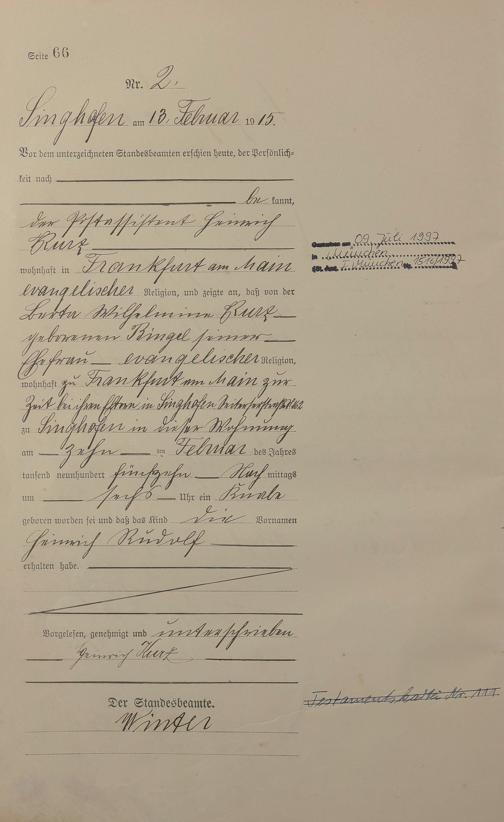 Seite 66
Nr. 2.
Singhofen am 13. Februar 1915.
Vor dem unterzeichneten Standesbeamten erschien heute, der Persönlich-
keit nach
be kannt,
der Postassistent Heinrich
Kurz
wohnhaft in Frankfurt am Main
evangelischer Religion, und zeigte an, daß von der
Berta Wilhelmine Kurz
geborenen Ringel seiner
Ehefrau evangelischer Religion,
wohnhaft zu Frankfurt am Main zur
Zeit bei ihren Eltern in Singhofen
zu Singhofen in dieser Wohnung
am zehn ten Februar des Jahres
tausend neunhundert fünfzehn Nach mittags
um sechs Uhr ein Knabe
geboren worden sei und daß das Kind die Vornamen
Heinrich Rudolf
erhalten habe.
Vorgelesen, genehmigt und unterschrieben
Heinrich Kurz
Der Standesbeamte.
Winter
Gestorben am 09. Juli 1997
in München
St. Amt I München Nr.
Testamentskartei Nr. 111